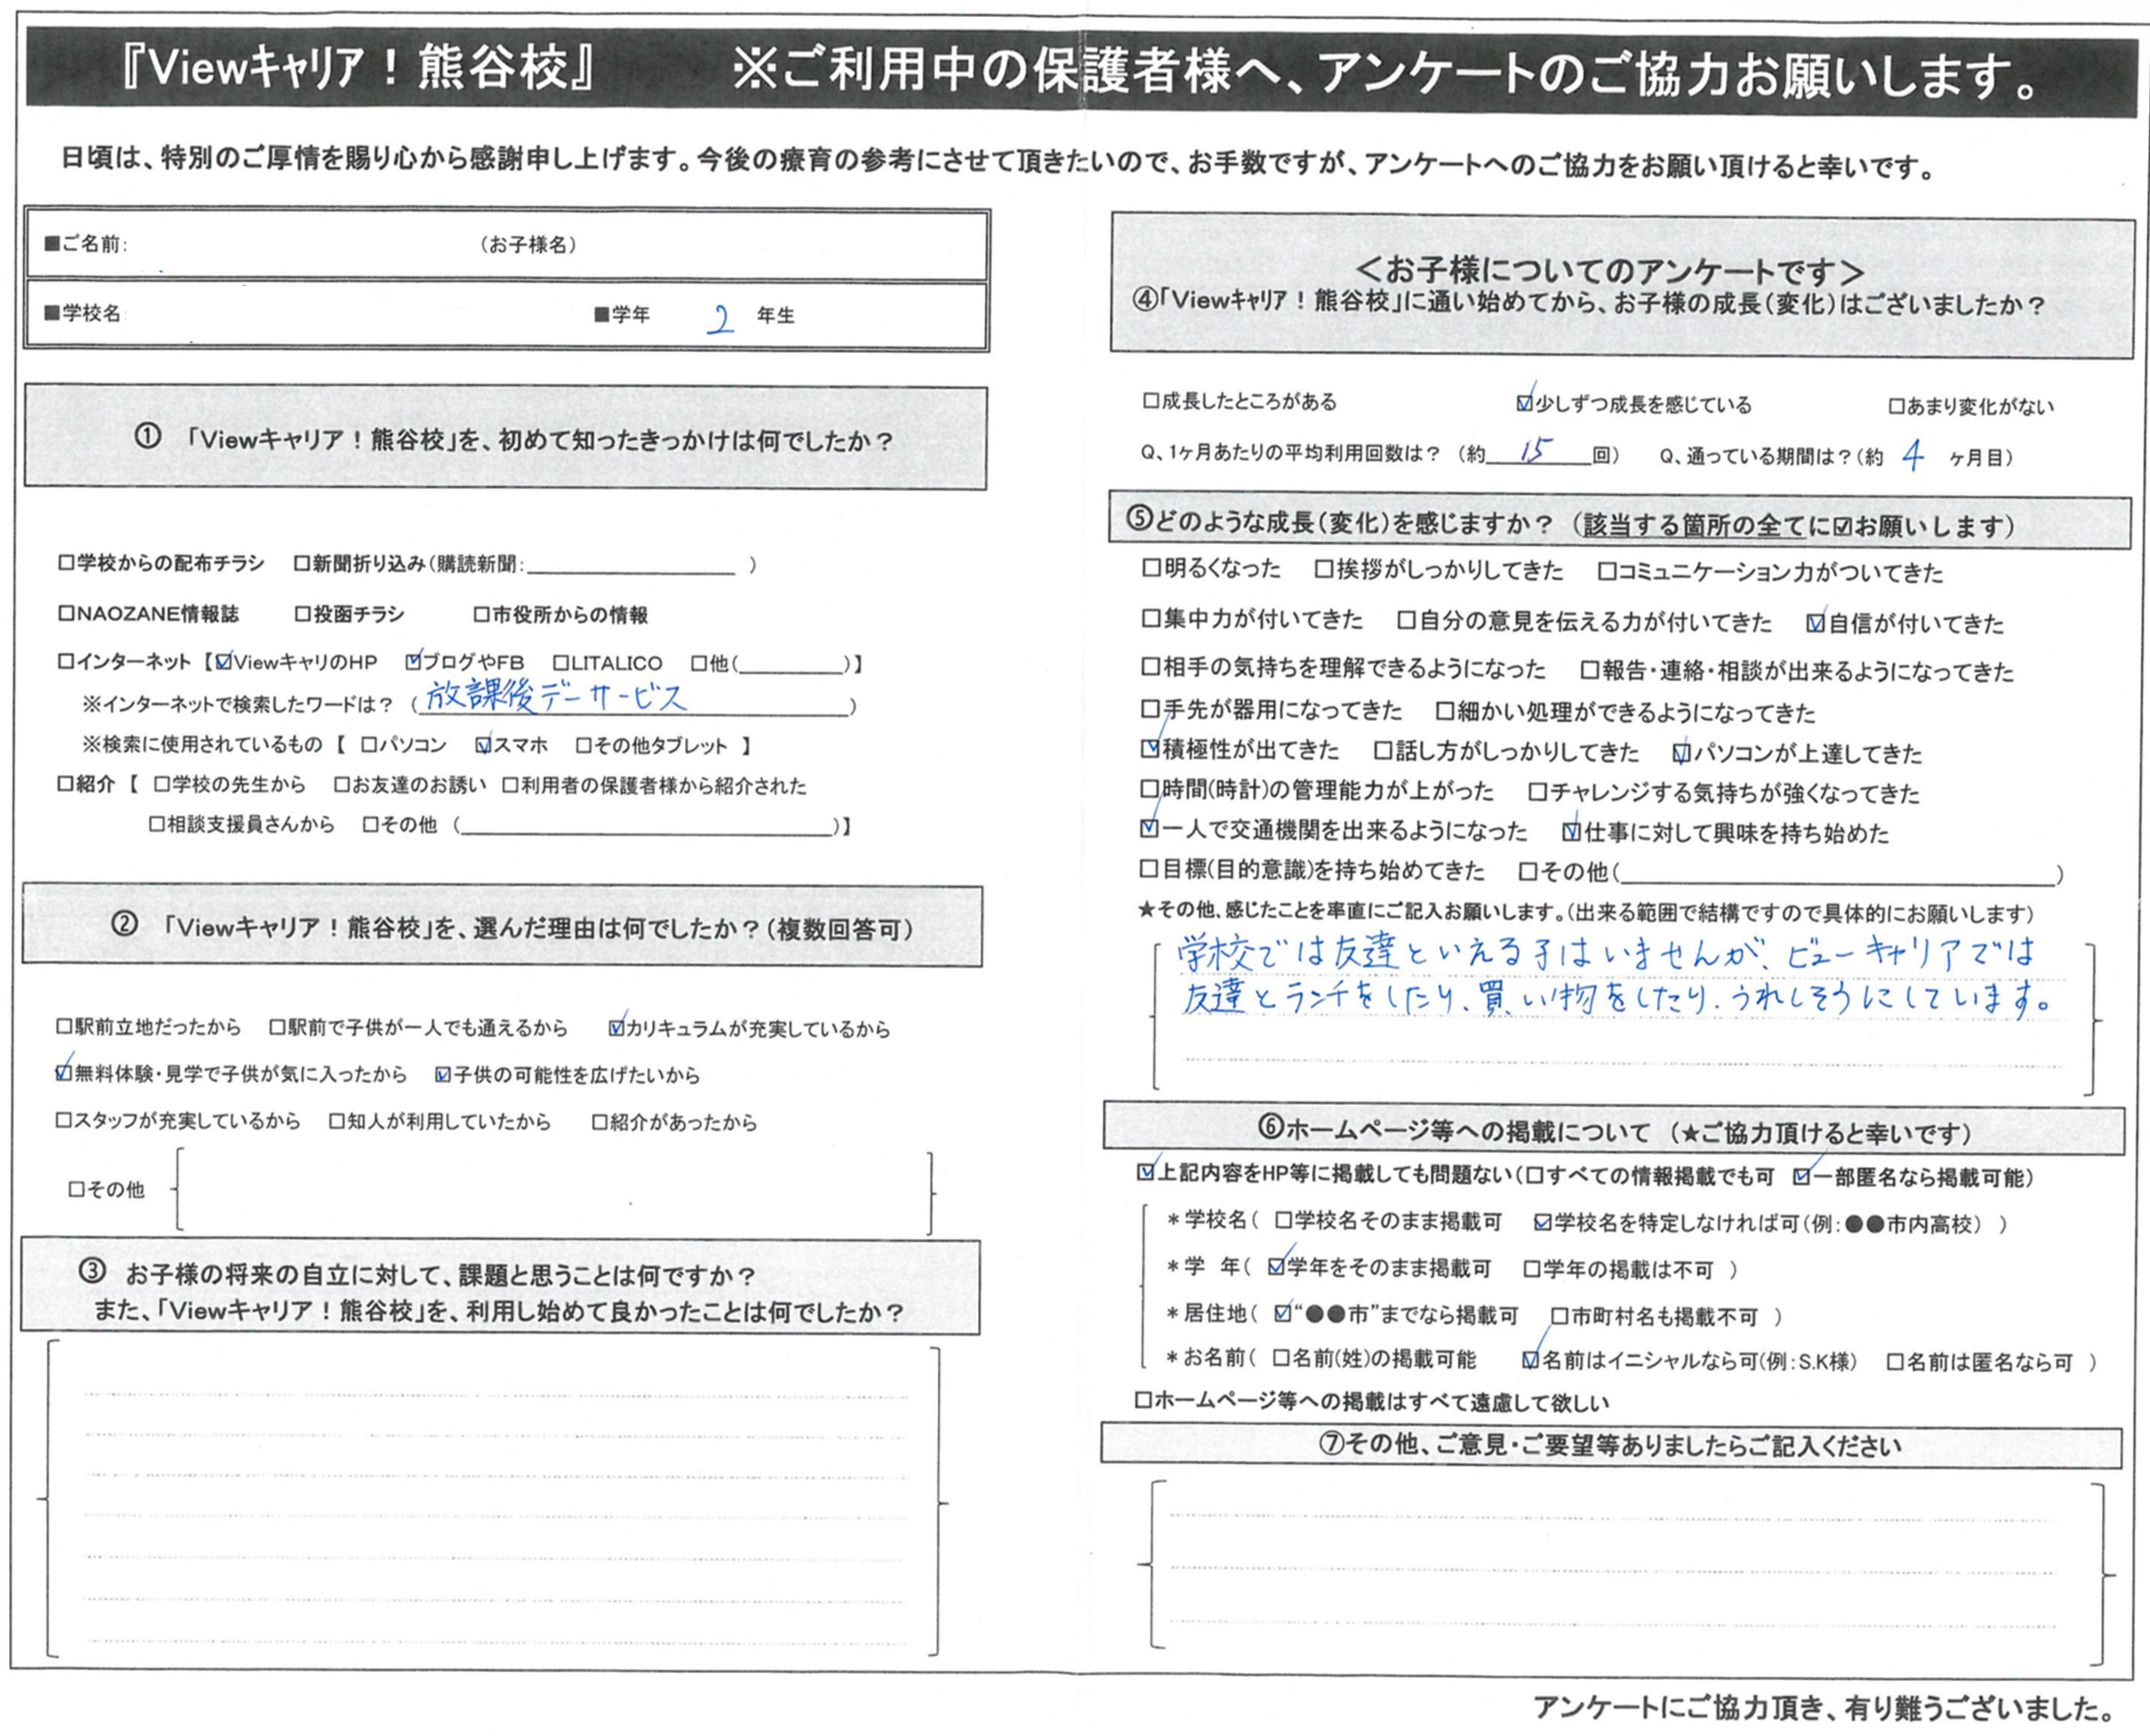 『Viewキャリア！熊谷校』　　※ご利用中の保護者様へ、アンケートのご協力お願いします。
日頃は、特別のご厚情を賜り心から感謝申し上げます。今後の療育の参考にさせて頂きたいので、お手数ですが、アンケートへのご協力をお願い頂けると幸いです。
■ご名前:　　（お子様名）
■学校名　　■学年　2　年生
①　「Viewキャリア！熊谷校」を、初めて知ったきっかけは何でしたか？
□学校からの配布チラシ　□新聞折り込み（購読新聞:＿＿＿＿＿＿）
□NAOZANE情報誌　□投函チラシ　□市役所からの情報
□インターネット【☑ViewキャリのHP　☑ブログやFB　□LITALICO　□他(＿＿＿＿)】
※インターネットで検索したワードは？（放課後デーサービス）
※検索に使用されているもの【　□パソコン　☑スマホ　□その他タブレット　】
□紹介【　□学校の先生から　□お友達のお誘い　□利用者の保護者様から紹介された
□相談支援員さんから　□その他（＿＿＿＿＿＿＿＿）】
②　「Viewキャリア！熊谷校」を、選んだ理由は何でしたか？（複数回答可）
□駅前立地だったから　□駅前で子供が一人でも通えるから　☑カリキュラムが充実しているから
☑無料体験・見学で子供が気に入ったから　☑子供の可能性を広げたいから
□スタッフが充実しているから　□知人が利用していたから　□紹介があったから
□その他
③　お子様の将来の自立に対して、課題と思うことは何ですか？
また、「Viewキャリア！熊谷校」を、利用し始めて良かったことは何でしたか？
＜お子様についてのアンケートです＞
④「Viewキャリア！熊谷校」に通い始めてから、お子様の成長（変化）はございましたか？
□成長したところがある　☑少しずつ成長を感じている　□あまり変化がない
Q、1ヶ月あたりの平均利用回数は？（約　15　回）　Q、通っている期間は？（約　4　ヶ月目）
⑤どのような成長（変化）を感じますか？（該当する箇所の全てに☑お願いします）
□明るくなった　□挨拶がしっかりしてきた　□コミュニケーション力がついてきた
□集中力が付いてきた　□自分の意見を伝える力が付いてきた　☑自信が付いてきた
□相手の気持ちを理解できるようになった　□報告・連絡・相談が出来るようになってきた
□手先が器用になってきた　□細かい処理ができるようになってきた
☑積極性が出てきた　□話し方がしっかりしてきた　☑パソコンが上達してきた
□時間(時計)の管理能力が上がった　□チャレンジする気持ちが強くなってきた
☑一人で交通機関を出来るようになった　☑仕事に対して興味を持ち始めた
□目標(目的意識)を持ち始めてきた　□その他(＿＿＿＿＿＿＿＿)
★その他、感じたことを率直にご記入お願いします。（出来る範囲で結構ですので具体的にお願いします）
学校では友達といえる子はいませんが、ビューキャリアでは
友達とランチをしたり、買い物をしたり、うれしそうにしています。
⑥ホームページ等への掲載について　（★ご協力頂けると幸いです）
☑上記内容をHP等に掲載しても問題ない（□すべての情報掲載でも可　☑一部匿名なら掲載可能）
＊学校名（　□学校名そのまま掲載可　☑学校名を特定しなければ可（例:●●市内高校）　）
＊学　年（　☑学年をそのまま掲載可　□学年の掲載は不可　）
＊居住地（　☑“●●市”までなら掲載可　□市町村名も掲載不可　）
＊お名前（　□名前(姓)の掲載可能　☑名前はイニシャルなら可(例:S.K様)　□名前は匿名なら可　）
□ホームページ等への掲載はすべて遠慮して欲しい
⑦その他、ご意見・ご要望等ありましたらご記入ください
アンケートにご協力頂き、有り難うございました。